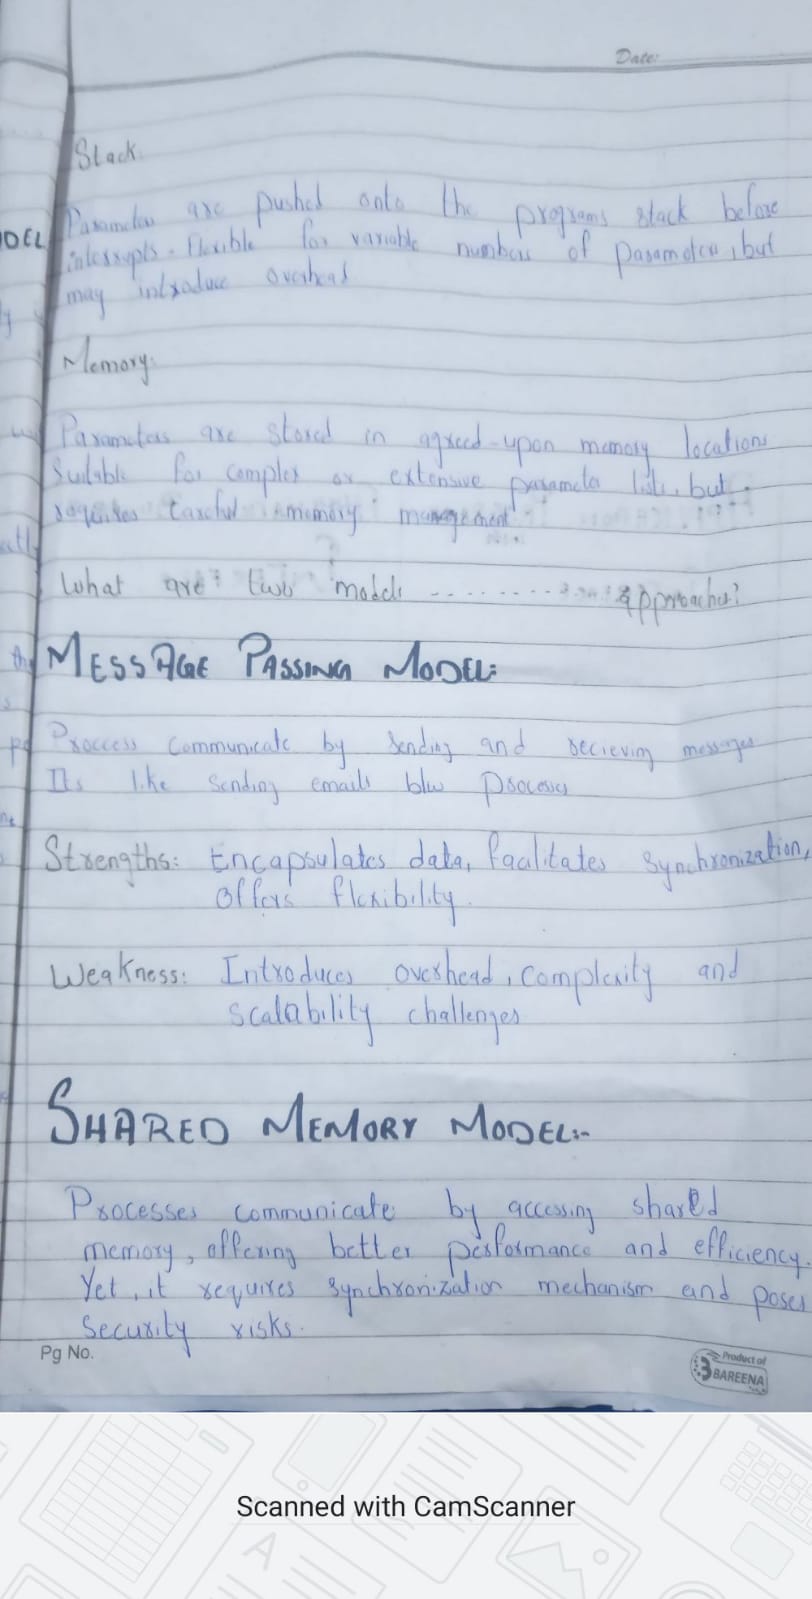 Date:
Stack.
Parameters are pushed onto the programs stack before
interrupts. Flexible for variable numbers of parameters, but
may introduce overhead
Memory:
Parameters are stored in agreed-upon memory locations
Suitable for complex or extensive parameter lists, but
requires careful memory management
What are two models ........ approaches?
MESSAGE PASSING MODEL:
Proccess communicate by sending and recieving messages
Its like sending emails b/w processes
Strengths: Encapsulates data, facilitates synchronization,
offers flexibility.
Weakness: Introduces overhead, complexity and
scalability challenges
SHARED MEMORY MODEL:-
Processes communicate by accessing shared
memory, offering better performance and efficiency.
Yet, it requires synchronization mechanism and poses
security risks.
Pg No.
Product of
BAREENA
Scanned with CamScanner